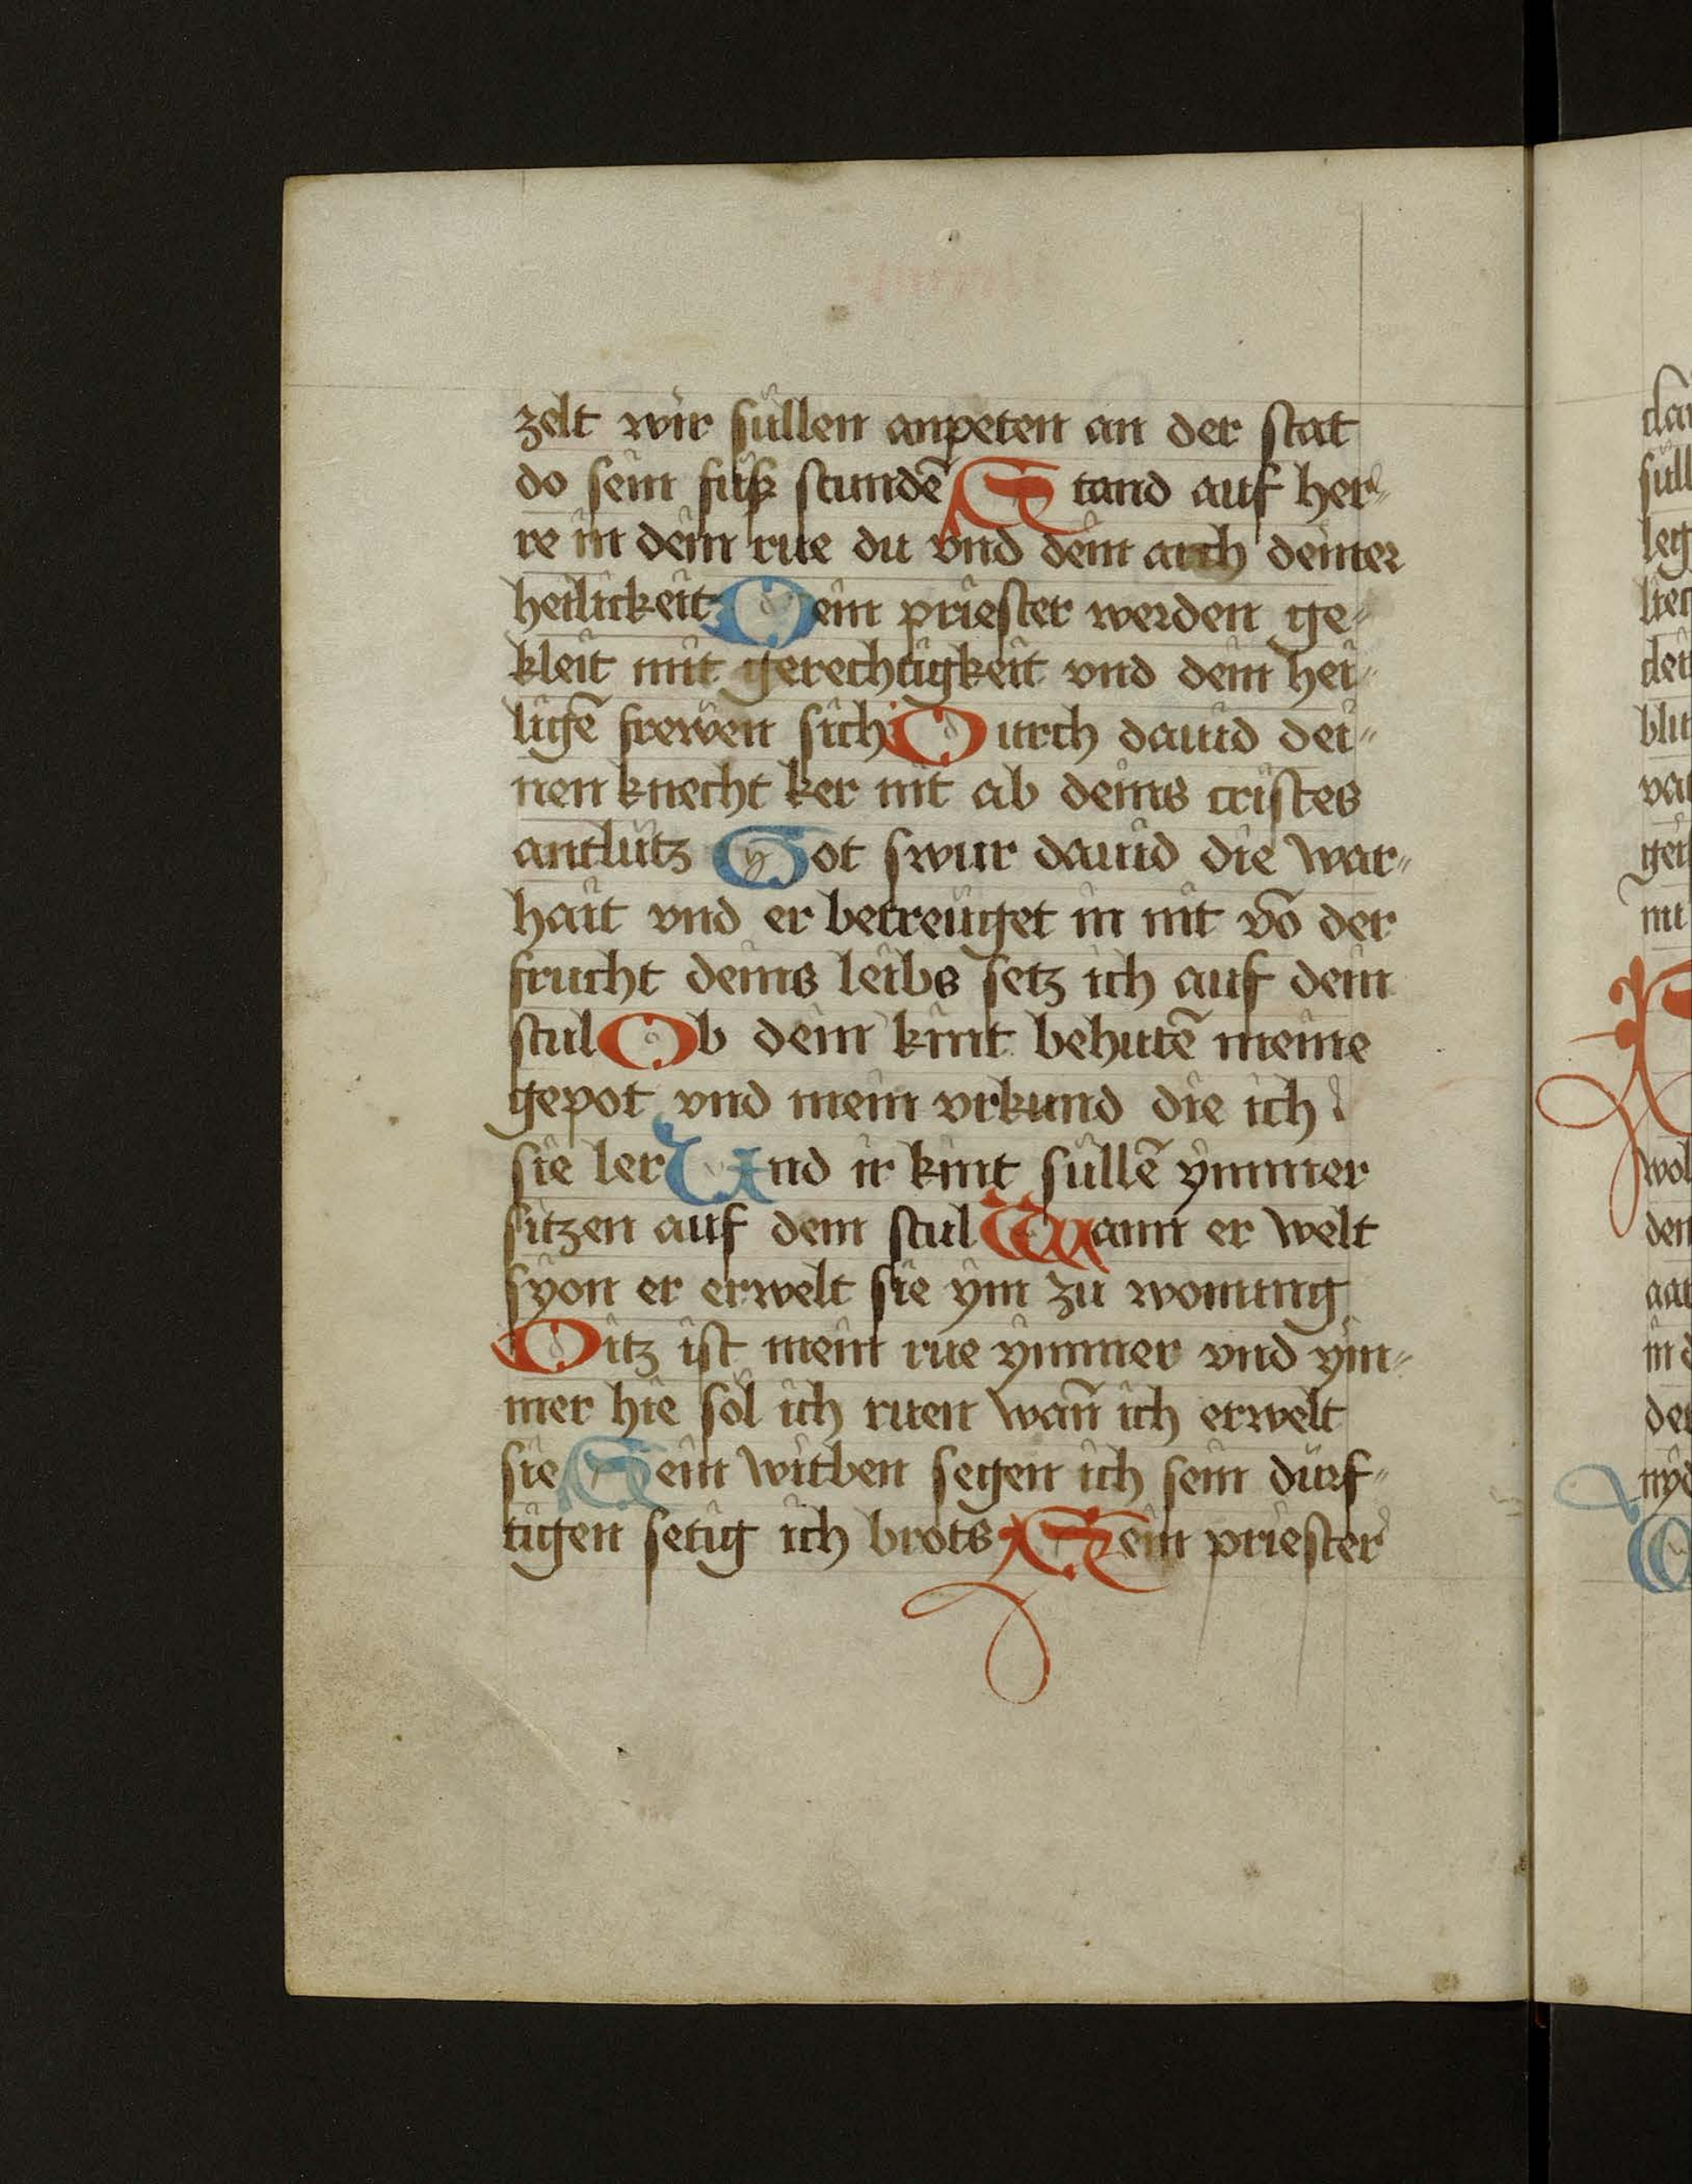 zelt wir süllen anpeten an der stat
do sein füß stundē Stand auf her⸗
re in dein rue du vnd dein arch deiner
heilickeit Dein priester werden ge⸗
kleit mit gerechtigkeit vnd dein hei⸗
ligē frewen sich Durch dauid dei⸗
nen knecht ker nit ab deins cristes
antlütz Got swur dauid die war⸗
hait vnd er betreüget in nit vō der
frucht deins leibs setz ich auf dein
stul Ob dein kint behutē meine
gepot vnd mein vrkund die ich
sie ler Vnd ir kint süllē ymmer
sitzen auf dem stul Wann er welt
syon er erwelt sie ym zu wonung
Ditz ist mein rue ymmer vnd ym⸗
mer hie sol ich ruen wan̄ ich erwelt
sie Sein witben segen ich sein dürf⸗
tigen setig ich brots Sein priester